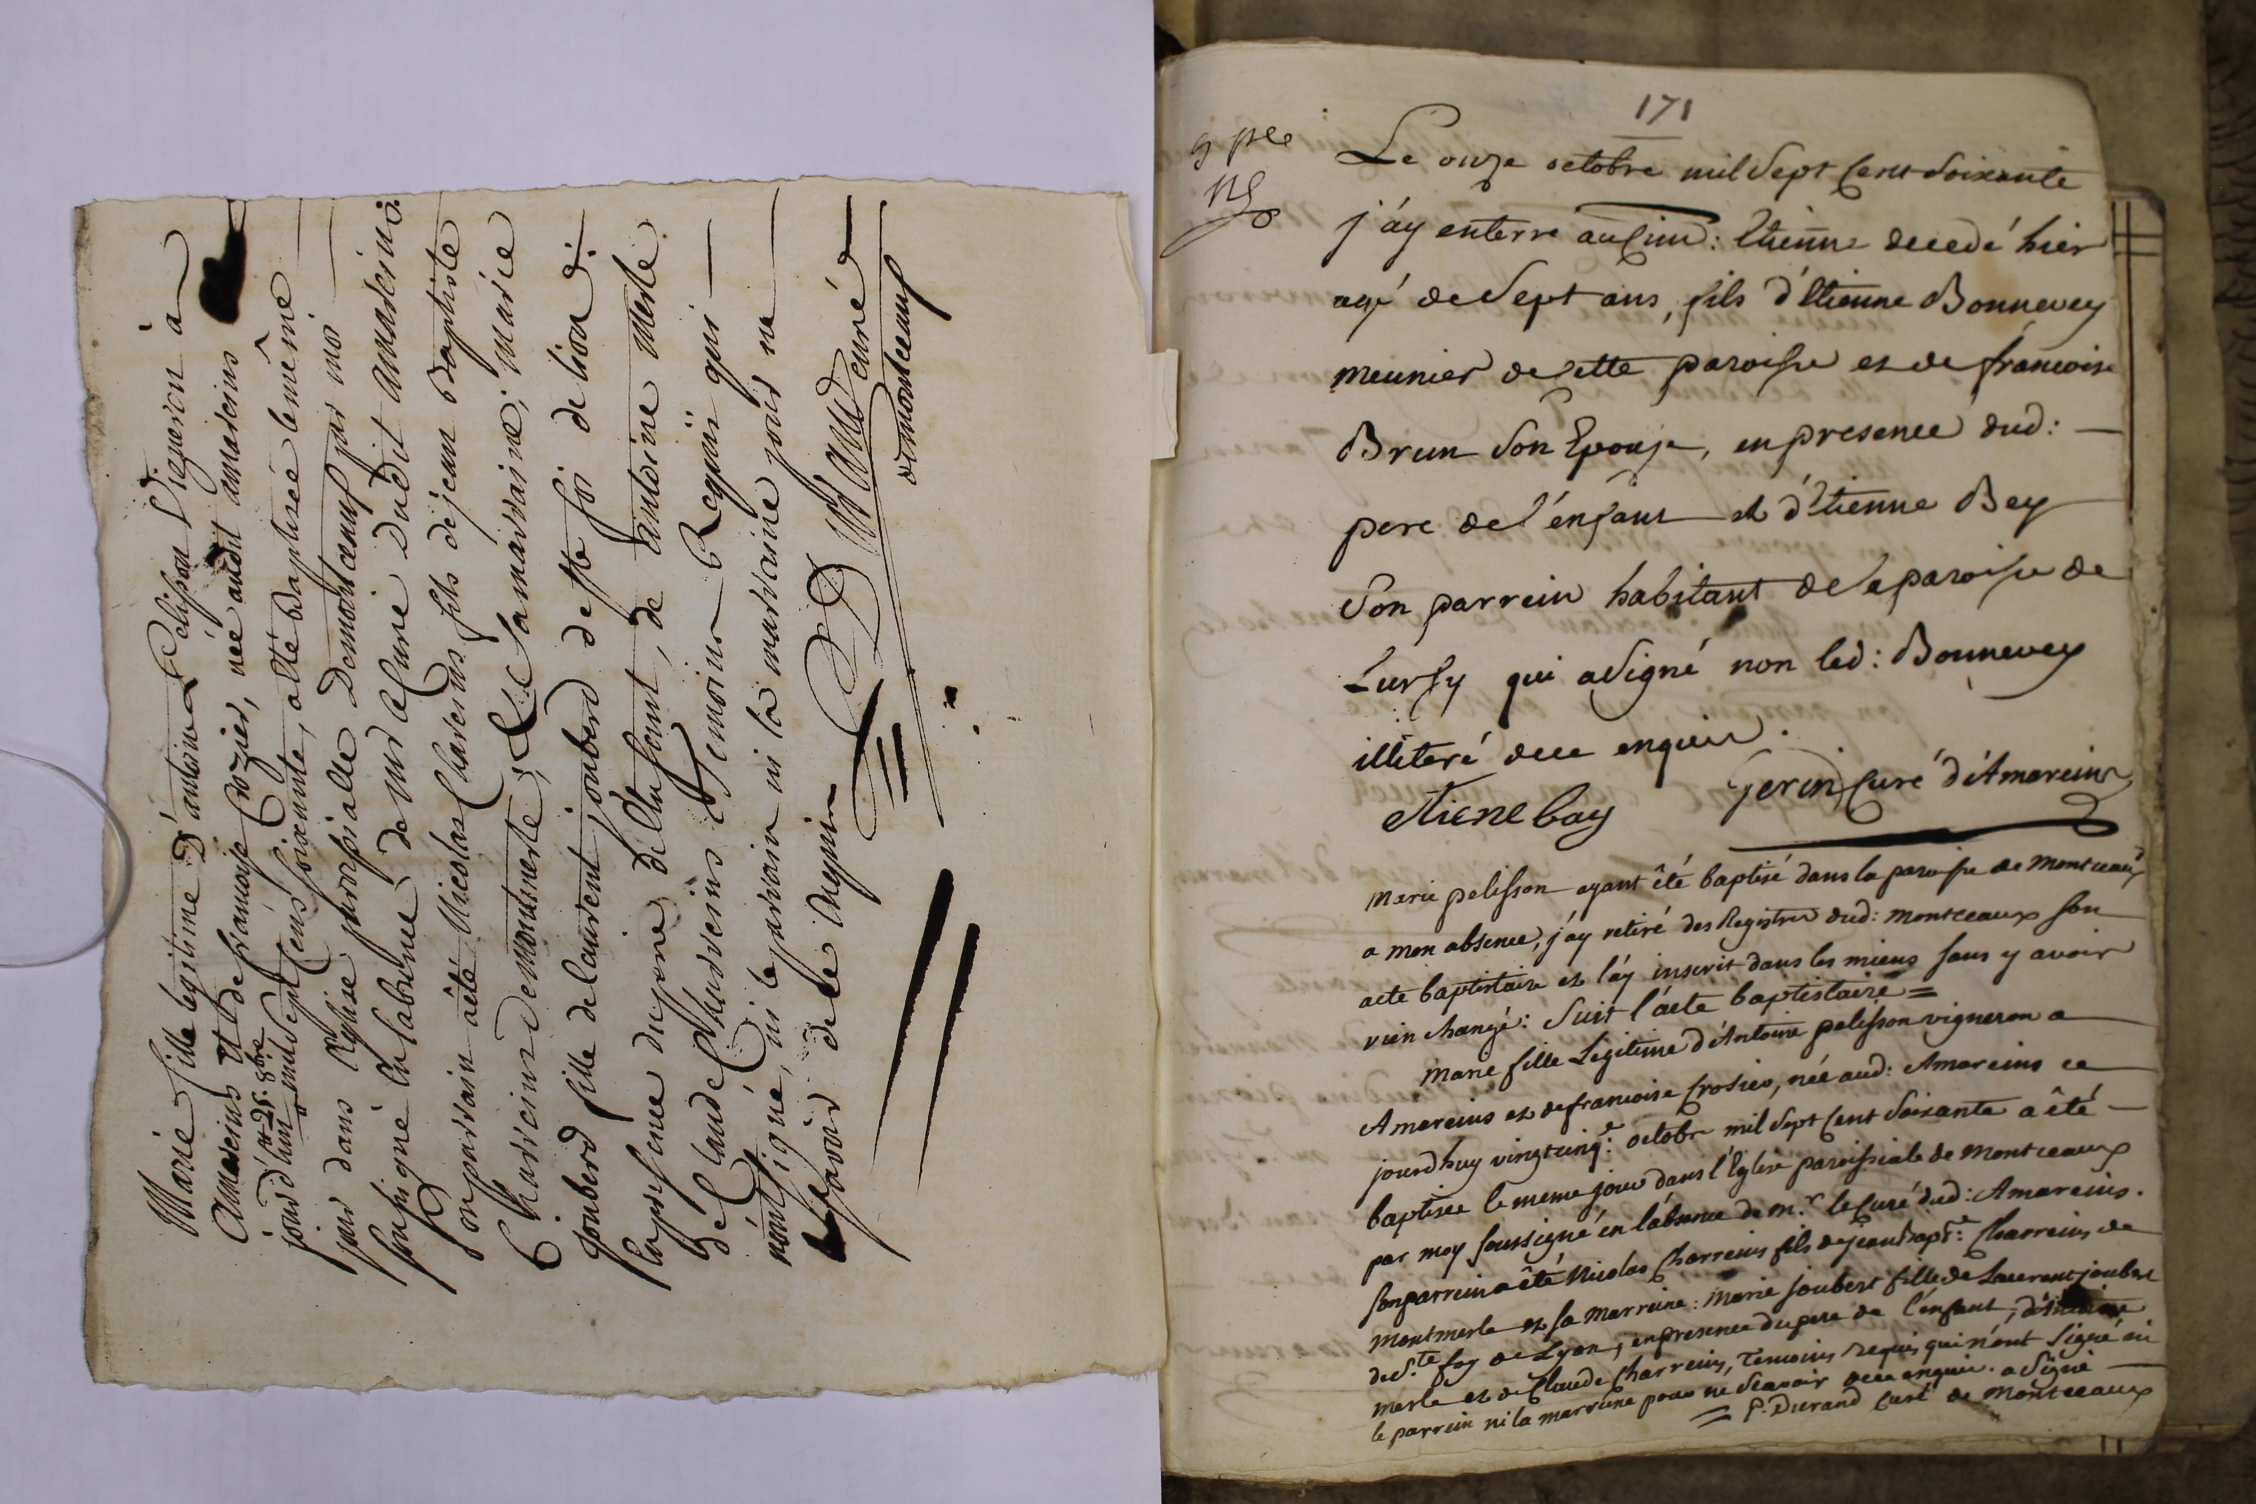 Marie fille legitime D'antoine Pelisson Vigneron à
Amareins et de francoise Crozier, née audit amareins
ce 25. 8bre
jourd'hui mil sept cens soixante, a été Baptisée le même
jour dans l'Eglise paroissialle Demontceaux par moi
soussigné en labsence de mr le Curé Dudit amareins.
son parrain a été Nicolas Charreins fils de jean Baptiste
Charreins de montmerle, & sa marraine, marie
jouberd fille de laurent jouberd de ste foi de lion &.
la presence du pere de l'enfant, de antoine merle
de Claude Charreins temoins Requis qui
n'ont signé, ni le parrain ni la marraine pour ne
scavoir de ce enquis
Durand curé
demontceaux
171
9 pre
Le onze octobre mil sept cent soixante
j'ay enterré au Cim: Etienne decedé hier
agé de sept ans, fils d'Etienne Bonnevey
meunier de cette paroisse et de francoise
Brun son Epouse, en presence dud:
pere de l'enfant et d'Etienne Bey
son parrein habitant de la paroisse de
Lurcy qui a signé non led: Bonnevey
illiteré de ce enquis.
etiene bay
Gerin Curé d'Amareins
Marie pelisson ayant été baptisé dans la paroisse de Montceaux
a mon absence, j'ay retiré des Registres dud: montceaux son
acte baptistaire et l'ay inscrit dans les miens sans y avoir
rien changé: Suit l'acte baptistaire =
Marie fille Legitime d'Antoine pelisson vigneron a
Amareins et de francoise Crosier, née aud: Amareins ce
jourdhuy vingtcinq.e octobre mil sept cent soixante a été
baptisée le meme jour dans l'Eglise paroissiale de Montceaux
par moy soussigné en l'absence de m.r le Curé dud: Amareins.
son parrein a été Nicolas Charreins fils de jean bapt.e Charreins de
montmerle et sa marreine: Marie joubert fille de Laurent joubert
de S.te foy de Lyon, en presence du pere de l'enfant, d'Antoine
merle et de Claude Charreins, Temoins requis qui n'ont signé ni
le parrein ni la marreine pour ne scavoir de ce enquis. a signé
= P. Durand Curé de Montceaux